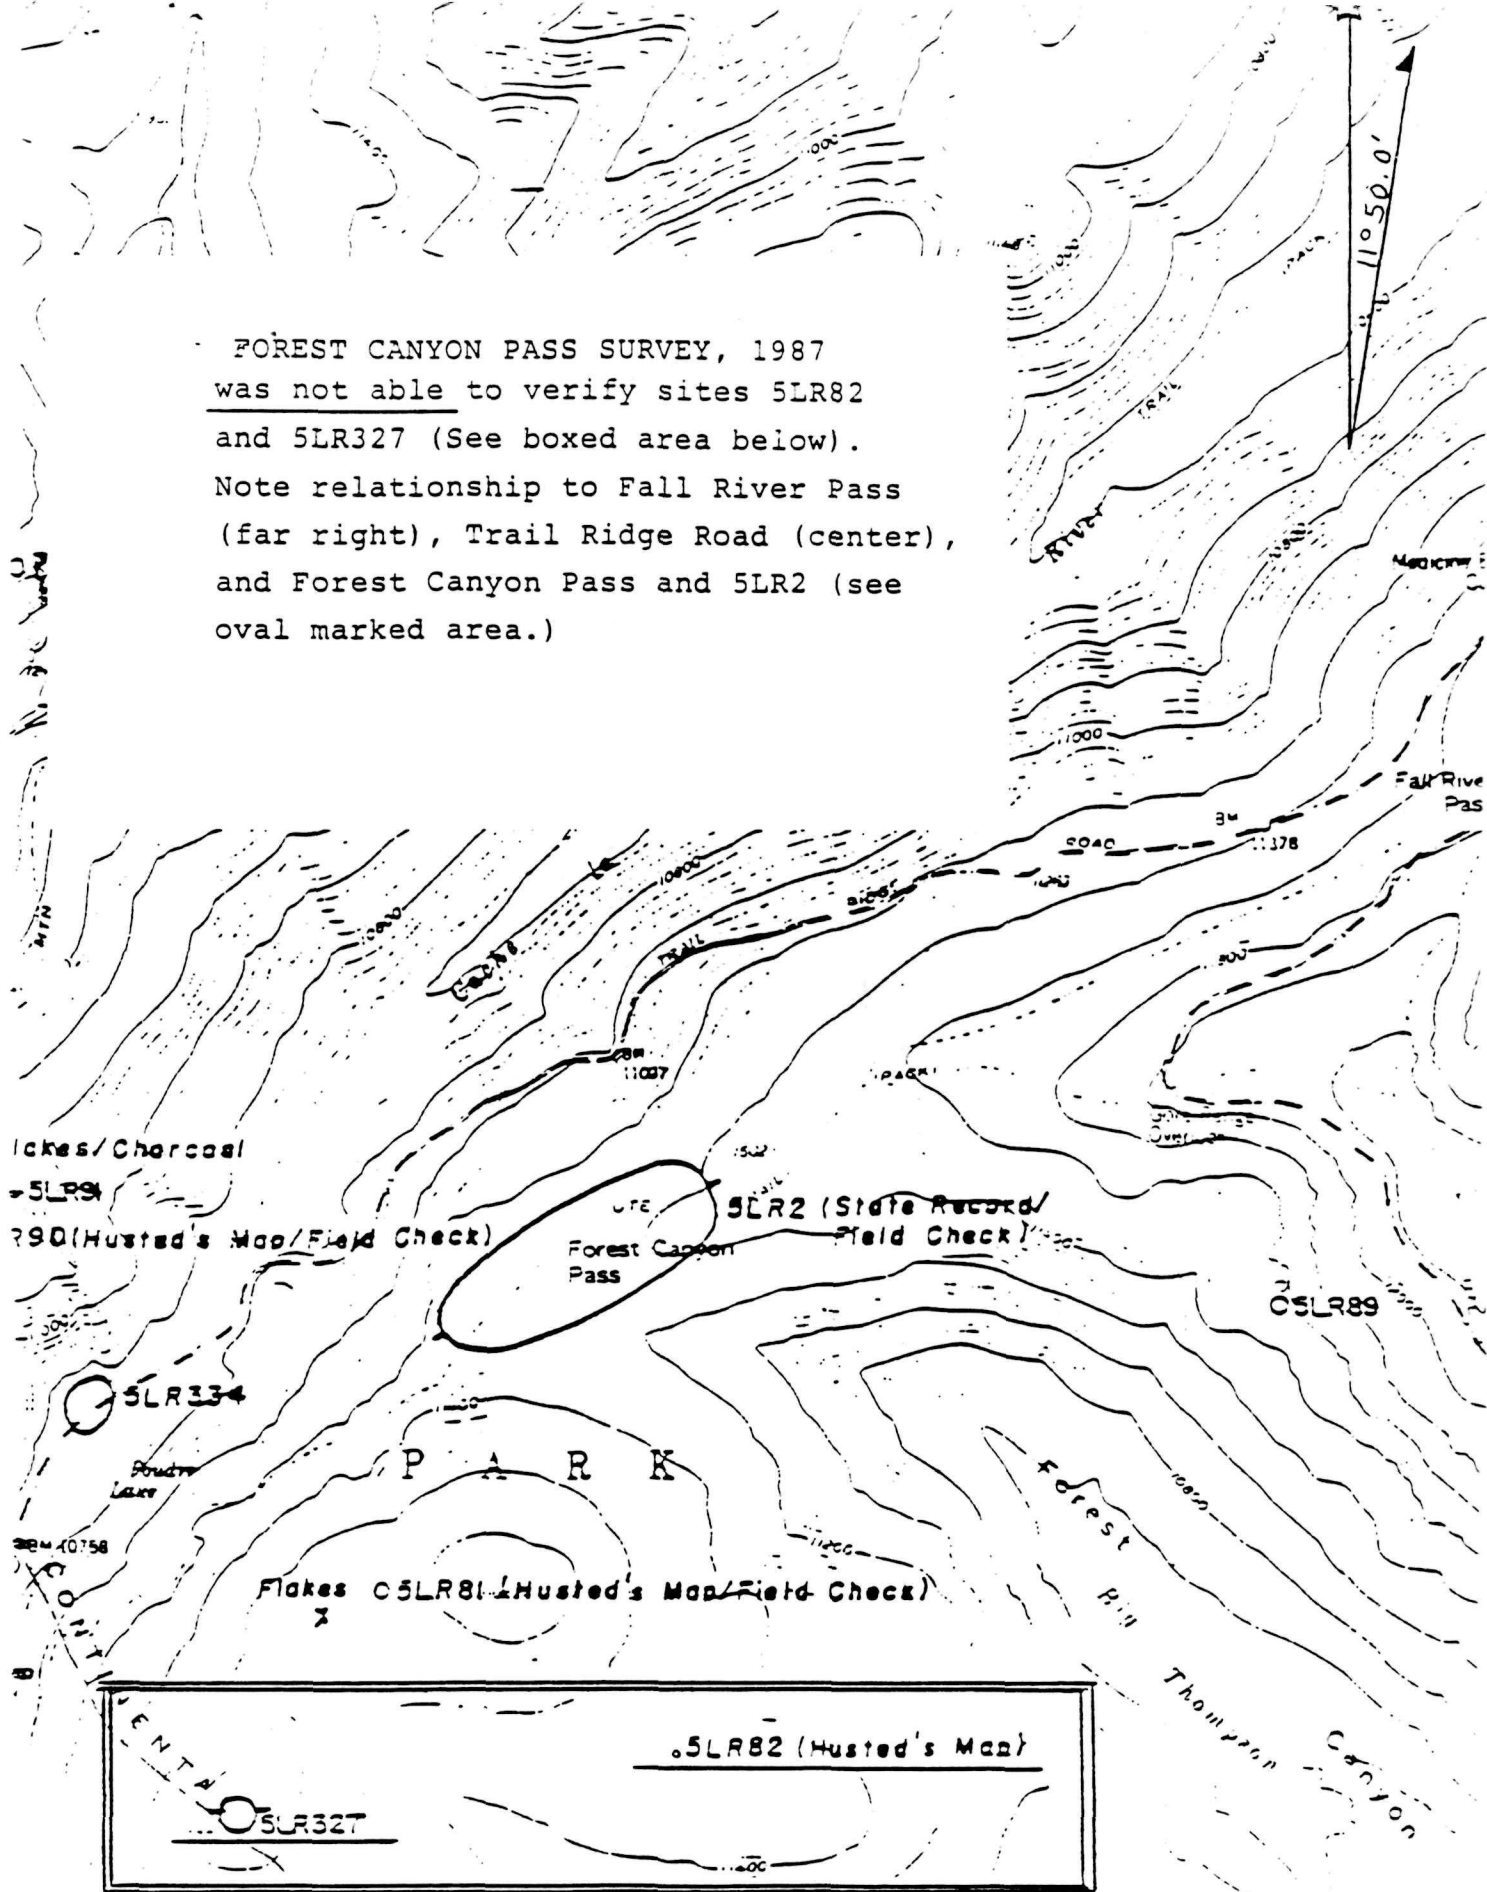 11° 50.0'
11400
11000
FOREST CANYON PASS SURVEY, 1987
was not able to verify sites 5LR82
and 5LR327 (See boxed area below).
Note relationship to Fall River Pass
(far right), Trail Ridge Road (center),
and Forest Canyon Pass and 5LR2 (see
oval marked area.)
TRAIL
River
Medicine
11000
Fall Rive
Pas
BM
11378
ROAD
RIDGE
TRAIL
10800
10600
MTN
Cache
La
BM
11097
lakes/Charcoal
5LR91
R90(Husted's Map/Field Check)
UTE
TRAIL
5LR2 (State Record/
Field Check)
Forest Canyon
Pass
O5LR89
5LR334
Poudre
Lake
PARK
BM 10758
11200
10800
Forest
Flakes O5LR81 (Husted's Map/Field Check)
x
Big
Thompson
Canyon
CONTINENTA
.5LR82 (Husted's Map)
5LR327
11400